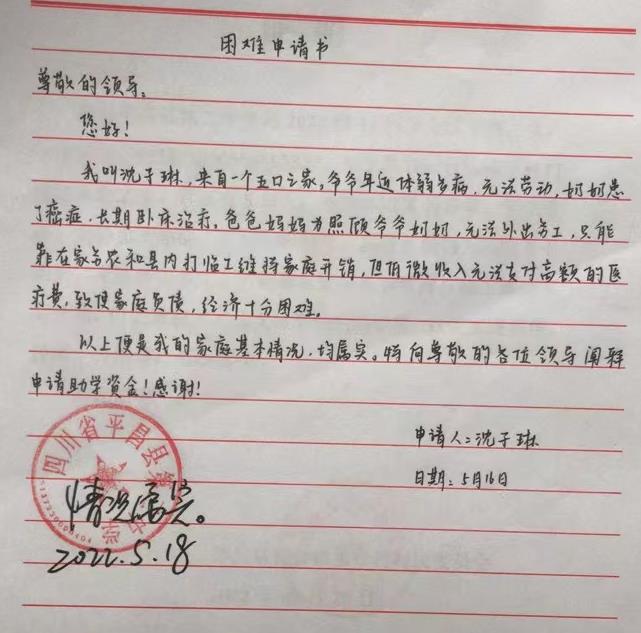 困难申请书
尊敬的领导。
您好！
我叫沈于琳，来自一个五口之家，爷爷年近体弱多病，无法劳动，奶奶患
了癌症，长期卧床治疗。爸爸妈妈为照顾爷爷奶奶，无法外出务工，只能
靠在家务农和县内打临工维持家庭开销，但由微收入无法支付高额的医
疗费，致使家庭负债，经济十分困难。
以上便是我的家庭基本情况，均属实。特向尊敬的各位领导阐释
申请助学资金！感谢！
申请人：沈于琳
日期：5月16日
四川省平昌县第 中学
5137239008404
情况属实。
2022.5.18